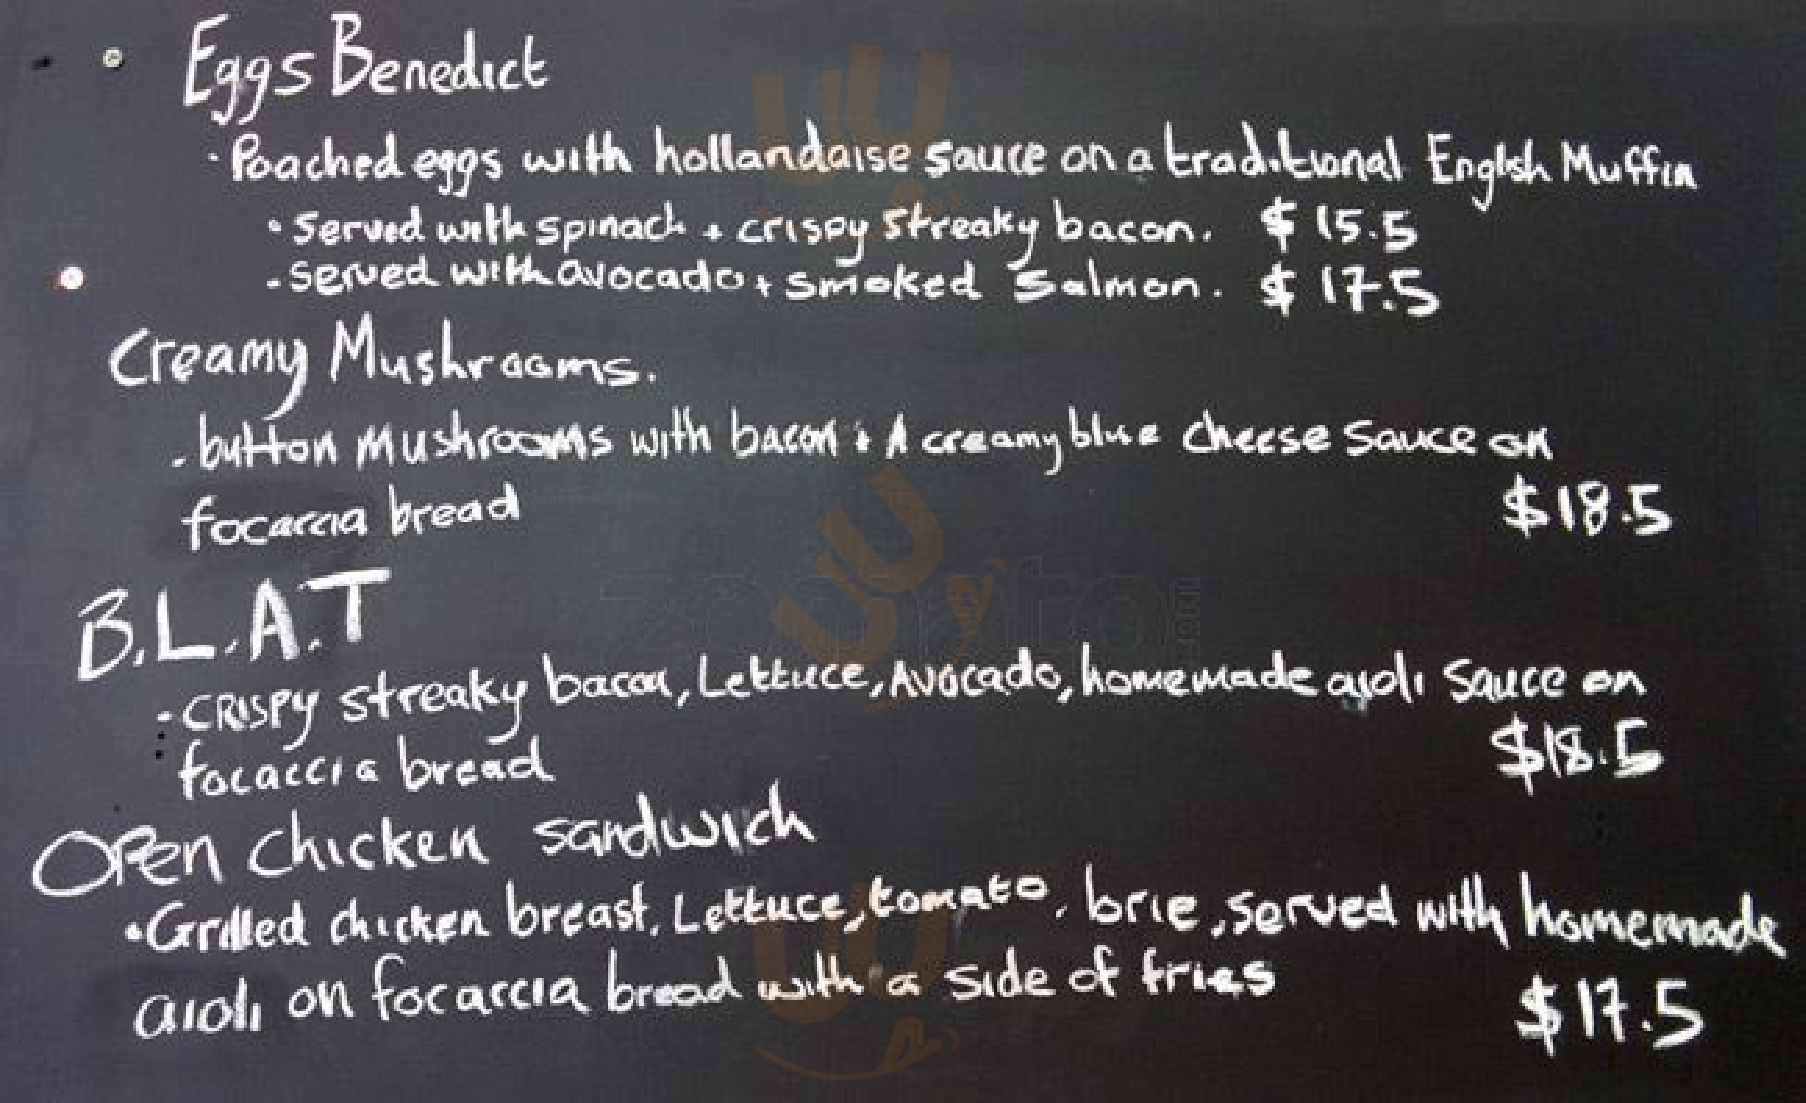 Eggs Benedict
· Poached eggs with hollandaise sauce on a traditional English Muffin
· Served with spinach + crispy streaky bacon. $15.5
· Served with avocado + smoked Salmon. $17.5
Creamy Mushrooms.
· button mushrooms with bacon + A creamy blue cheese sauce on
focaccia bread $18.5
B.L.A.T
- CRISPY streaky bacon, Lettuce, Avocado, homemade aioli sauce on
focaccia bread $18.5
Open chicken sandwich
· Grilled chicken breast, Lettuce, tomato, brie, served with homemade
aioli on focaccia bread with a side of fries $17.5
zomato.com